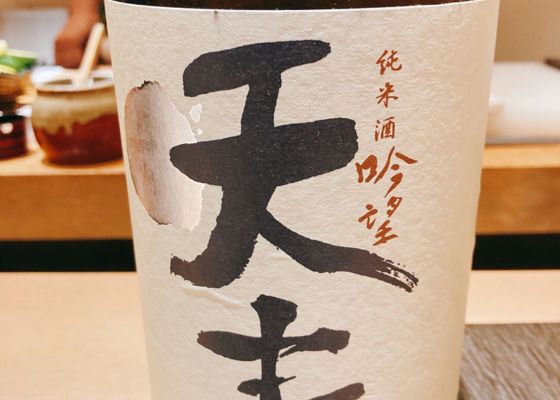 純米酒
吟望
天青